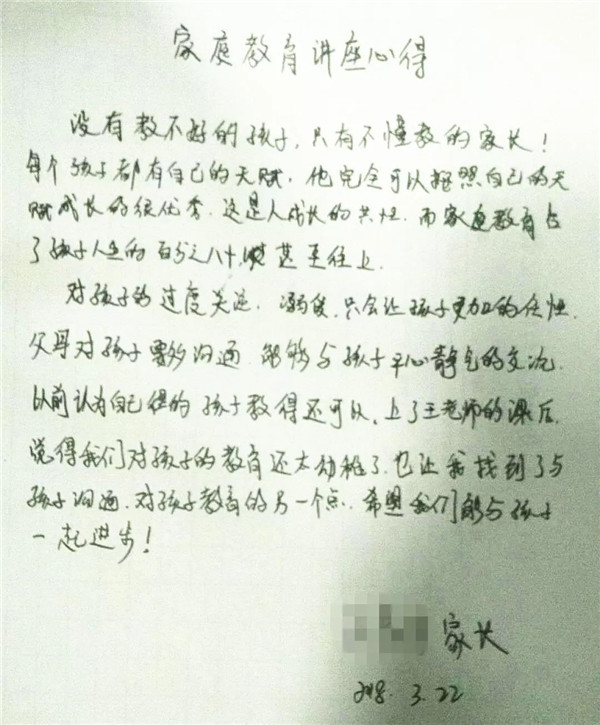 家庭教育讲座心得
没有教不好的孩子,只有不懂教的家长!
每个孩子都有自己的天赋,他完全可以按照自己的天
赋成长的很优秀。这是人成长的共性。而家庭教育占
了孩子人生的百分之八十,甚至往上。
对孩子的过度关注、溺爱,只会让孩子更加的任性.
父母对孩子要多沟通.能够与孩子平心静气的交流.
以前认为自己俩的孩子教得还可以、上了王老师的课后,
觉得我们对孩子的教育还太幼稚了.也让我找到了与
孩子沟通.对孩子教育的另一个点.希望我们能与孩子
一起进步!
家长
2018.3.22